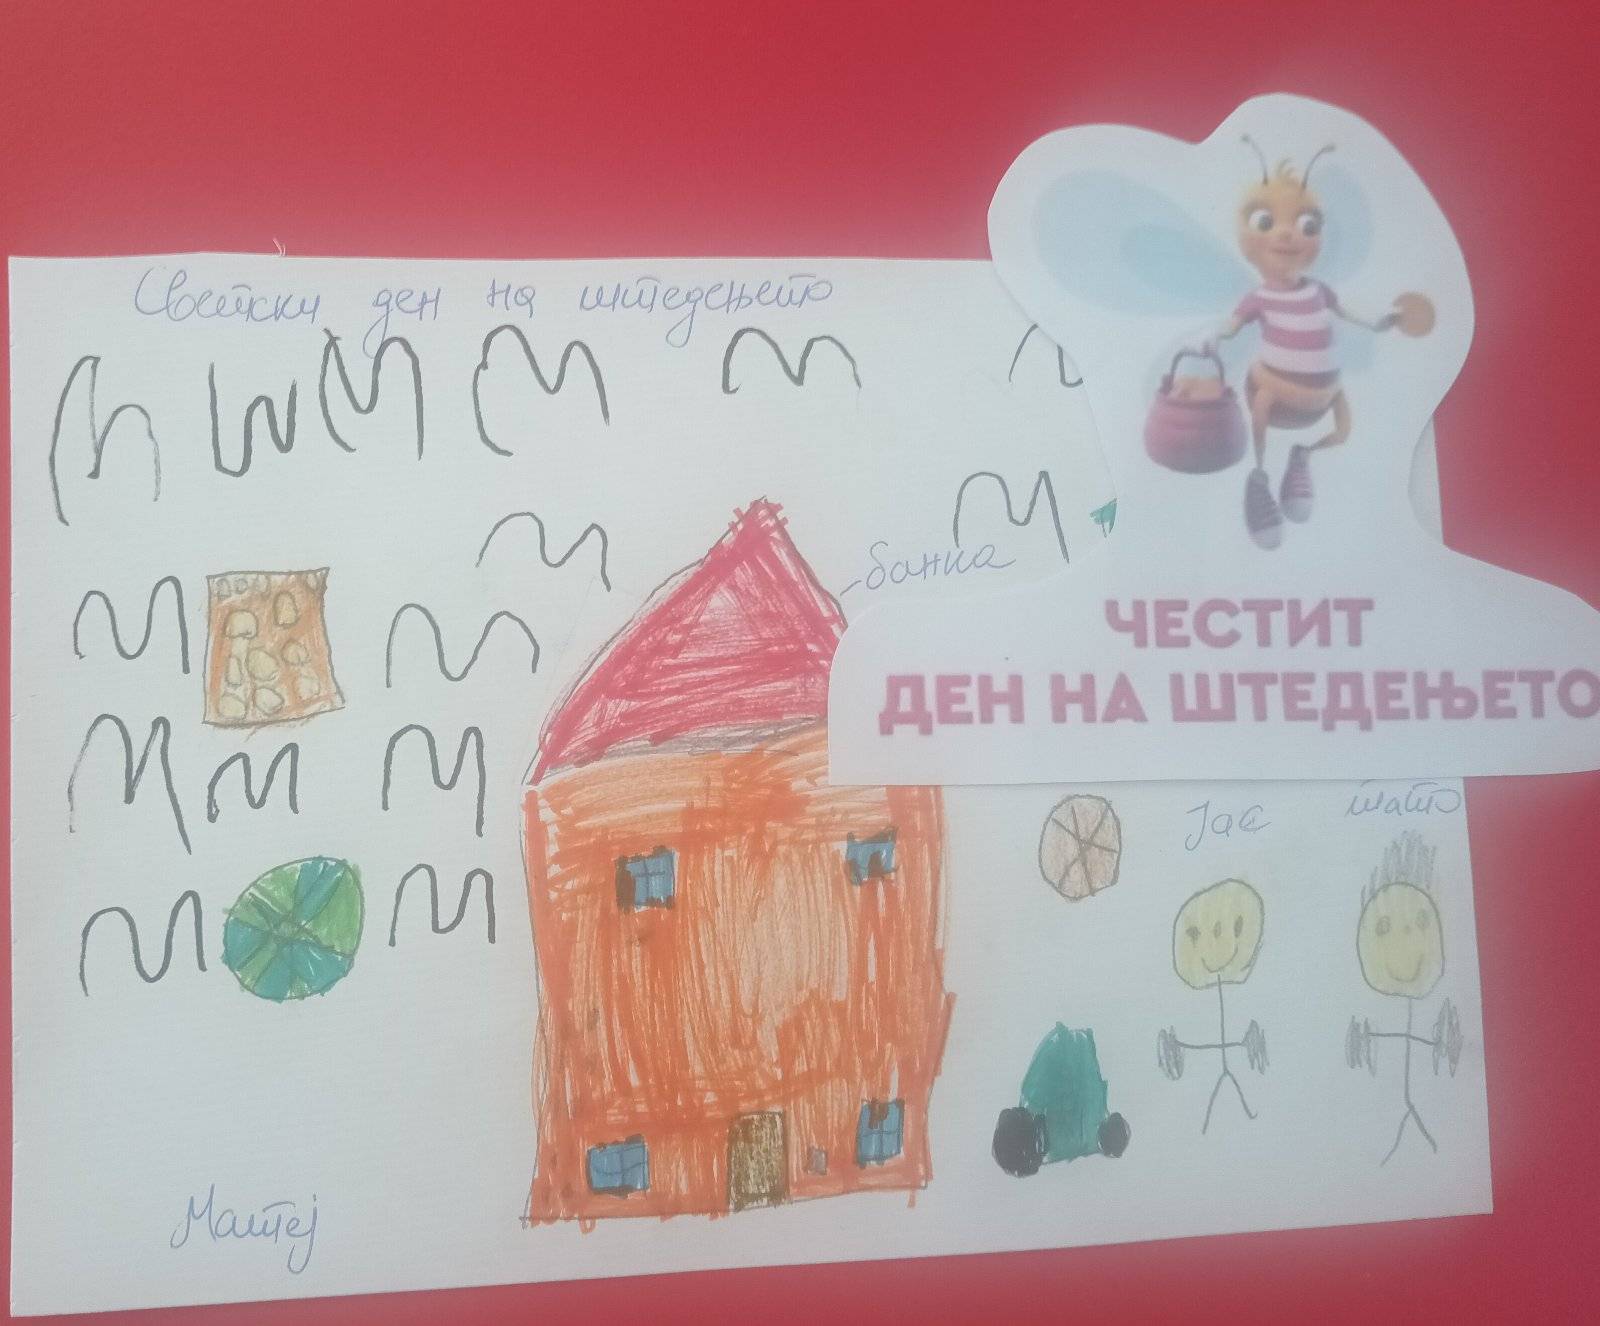 Светски ден на штедењето
банка
ЧЕСТИТ
ДЕН НА ШТЕДЕЊЕТО
Јас
тато
Матеј